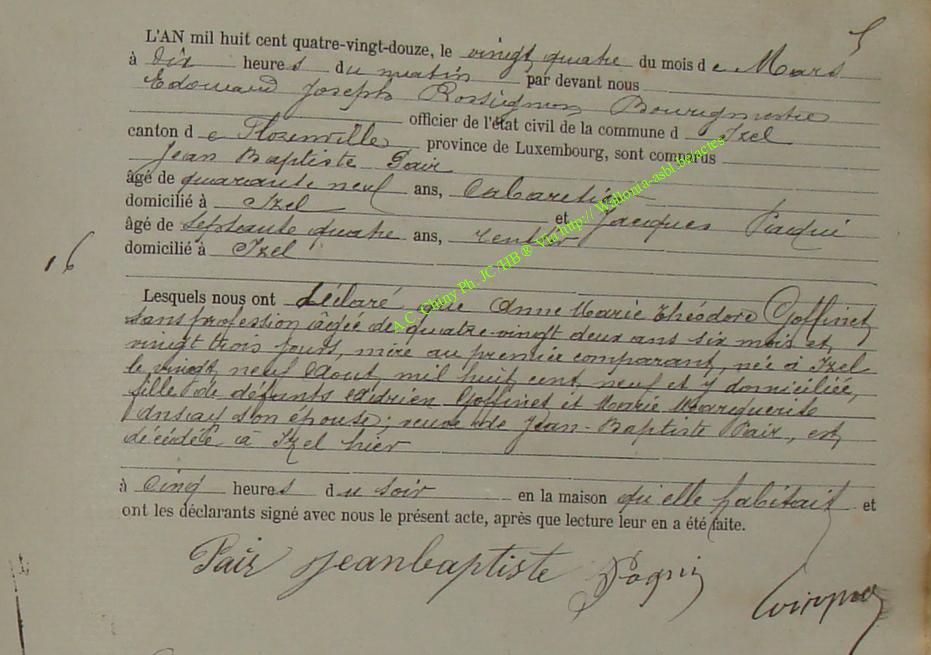 5
L'AN mil huit cent quatre-vingt-douze, le vingt quatre du mois de Mars
à dix heures du matin par devant nous
Edouard Joseph Rossignon Bourgmestre
officier de l'état civil de la commune d Izel
canton de Florenville province de Luxembourg, sont comparus
Jean Baptiste Pair
âgé de quarante neuf ans, Cabaretier
domicilié à Izel et Jacques
âgé de septante quatre ans, rentier
domicilié à Izel
16
Lesquels nous ont déclaré que Anne Marie Théodore Goffinet
sans profession âgée de quatre-vingt deux ans six mois et
vingt trois jours, mère au premier comparant, née à Izel
le vingt neuf Aout mil huit cent neuf et y domiciliée,
fille de défunts Adrien Goffinet et Marie Marguerite
Ansay son épouse; veuve de Jean-Baptiste Pair, est
décédée à Izel hier
à cinq heures du soir en la maison qu'elle habitait et
ont les déclarants signé avec nous le présent acte, après que lecture leur en a été faite.
Pair Jeanbaptiste
A.C. Chiny Ph. JC /HB ® Via http:// Walloma-asbl.be/actes